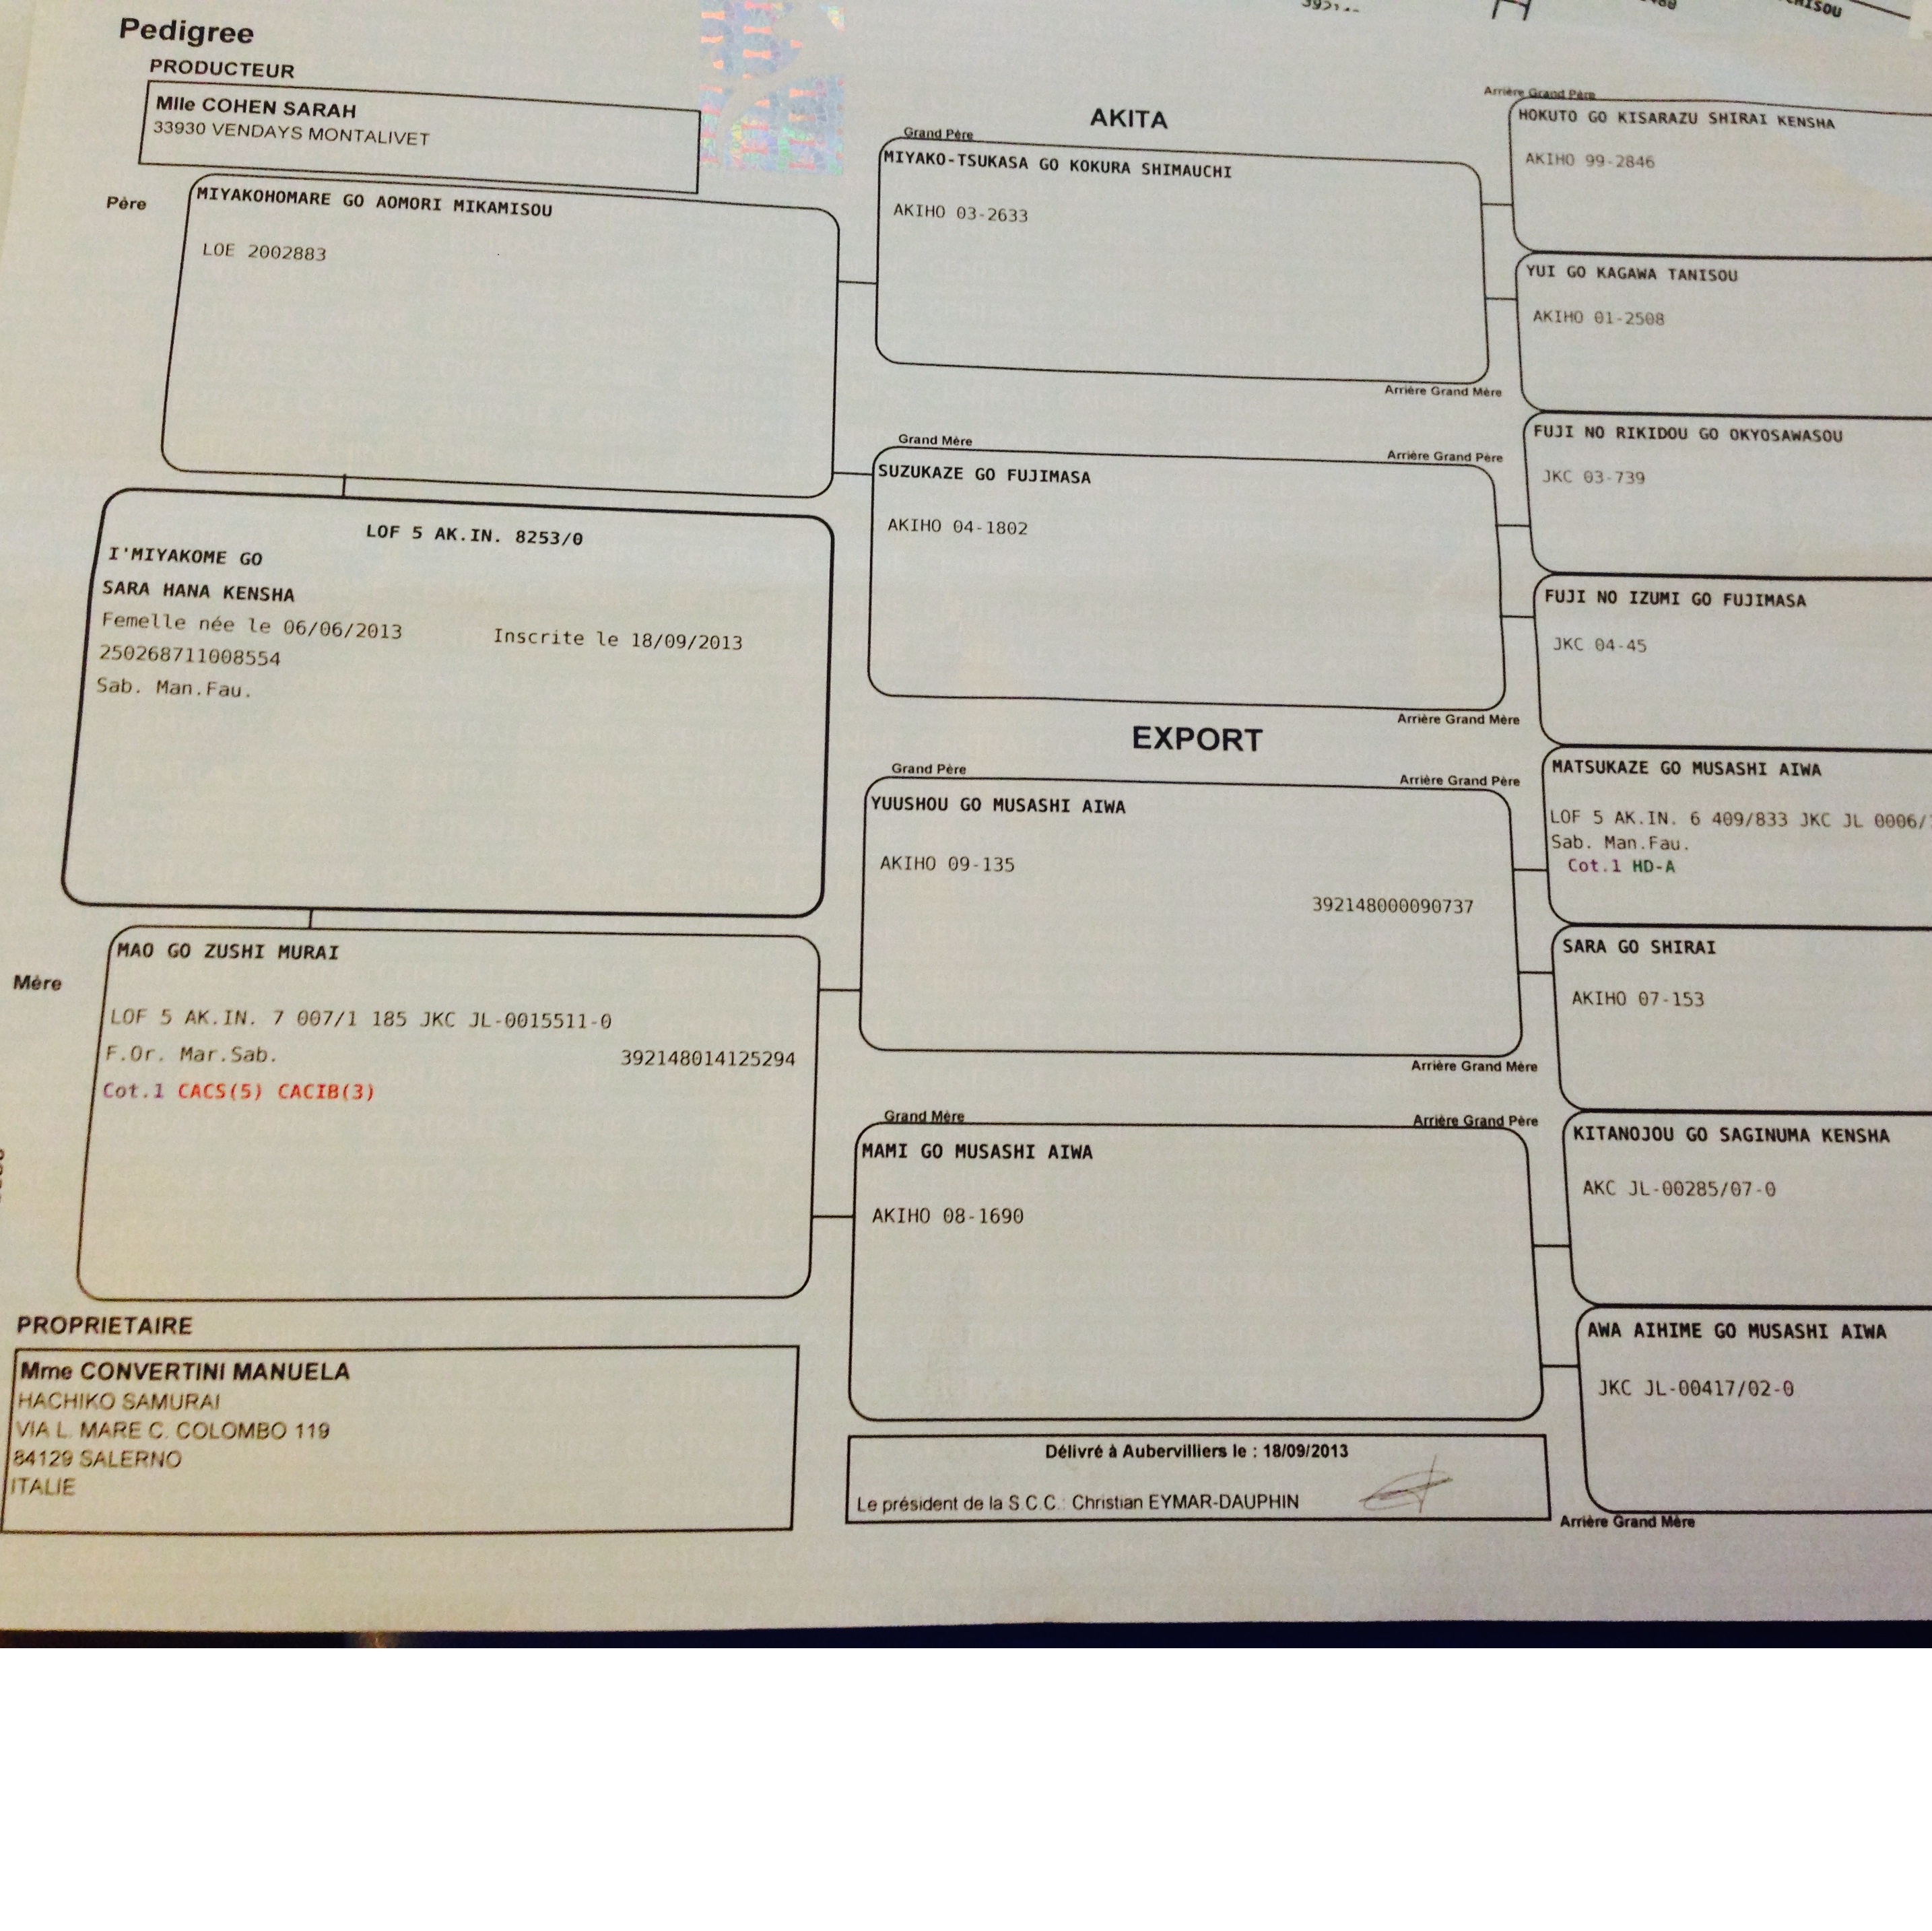 Pedigree
PRODUCTEUR
Mlle COHEN SARAH
33930 VENDAYS MONTALIVET
Père
MIYAKOHOMARE GO AOMORI MIKAMISOU
LOE 2002883
LOF 5 AK.IN. 8253/0
I'MIYAKOME GO
SARA HANA KENSHA
Femelle née le 06/06/2013 Inscrite le 18/09/2013
250268711008554
Sab. Man.Fau.
Mère
MAO GO ZUSHI MURAI
LOF 5 AK.IN. 7 007/1 185 JKC JL-0015511-0
F.Or. Mar.Sab. 392148014125294
Cot.1 CACS(5) CACIB(3)
PROPRIETAIRE
Mme CONVERTINI MANUELA
HACHIKO SAMURAI
VIA L. MARE C. COLOMBO 119
84129 SALERNO
ITALIE
AKITA
Grand Père
MIYAKO-TSUKASA GO KOKURA SHIMAUCHI
AKIHO 03-2633
Arrière Grand Mère
Grand Mère
Arrière Grand Père
SUZUKAZE GO FUJIMASA
AKIHO 04-1802
Arrière Grand Mère
EXPORT
Grand Père
Arrière Grand Père
YUUSHOU GO MUSASHI AIWA
AKIHO 09-135
392148000090737
Arrière Grand Mère
Grand Mère
Arrière Grand Père
MAMI GO MUSASHI AIWA
AKIHO 08-1690
Délivré à Aubervilliers le : 18/09/2013
Le président de la S.C.C.: Christian EYMAR-DAUPHIN
Arrière Grand Père
HOKUTO GO KISARAZU SHIRAI KENSHA
AKIHO 99-2846
YUI GO KAGAWA TANISOU
AKIHO 01-2508
FUJI NO RIKIDOU GO OKYOSAWASOU
JKC 03-739
FUJI NO IZUMI GO FUJIMASA
JKC 04-45
MATSUKAZE GO MUSASHI AIWA
LOF 5 AK.IN. 6 409/833 JKC JL 0006/
Sab. Man.Fau.
Cot.1 HD-A
SARA GO SHIRAI
AKIHO 07-153
KITANOJOU GO SAGINUMA KENSHA
AKC JL-00285/07-0
AWA AIHIME GO MUSASHI AIWA
JKC JL-00417/02-0
Arrière Grand Mère